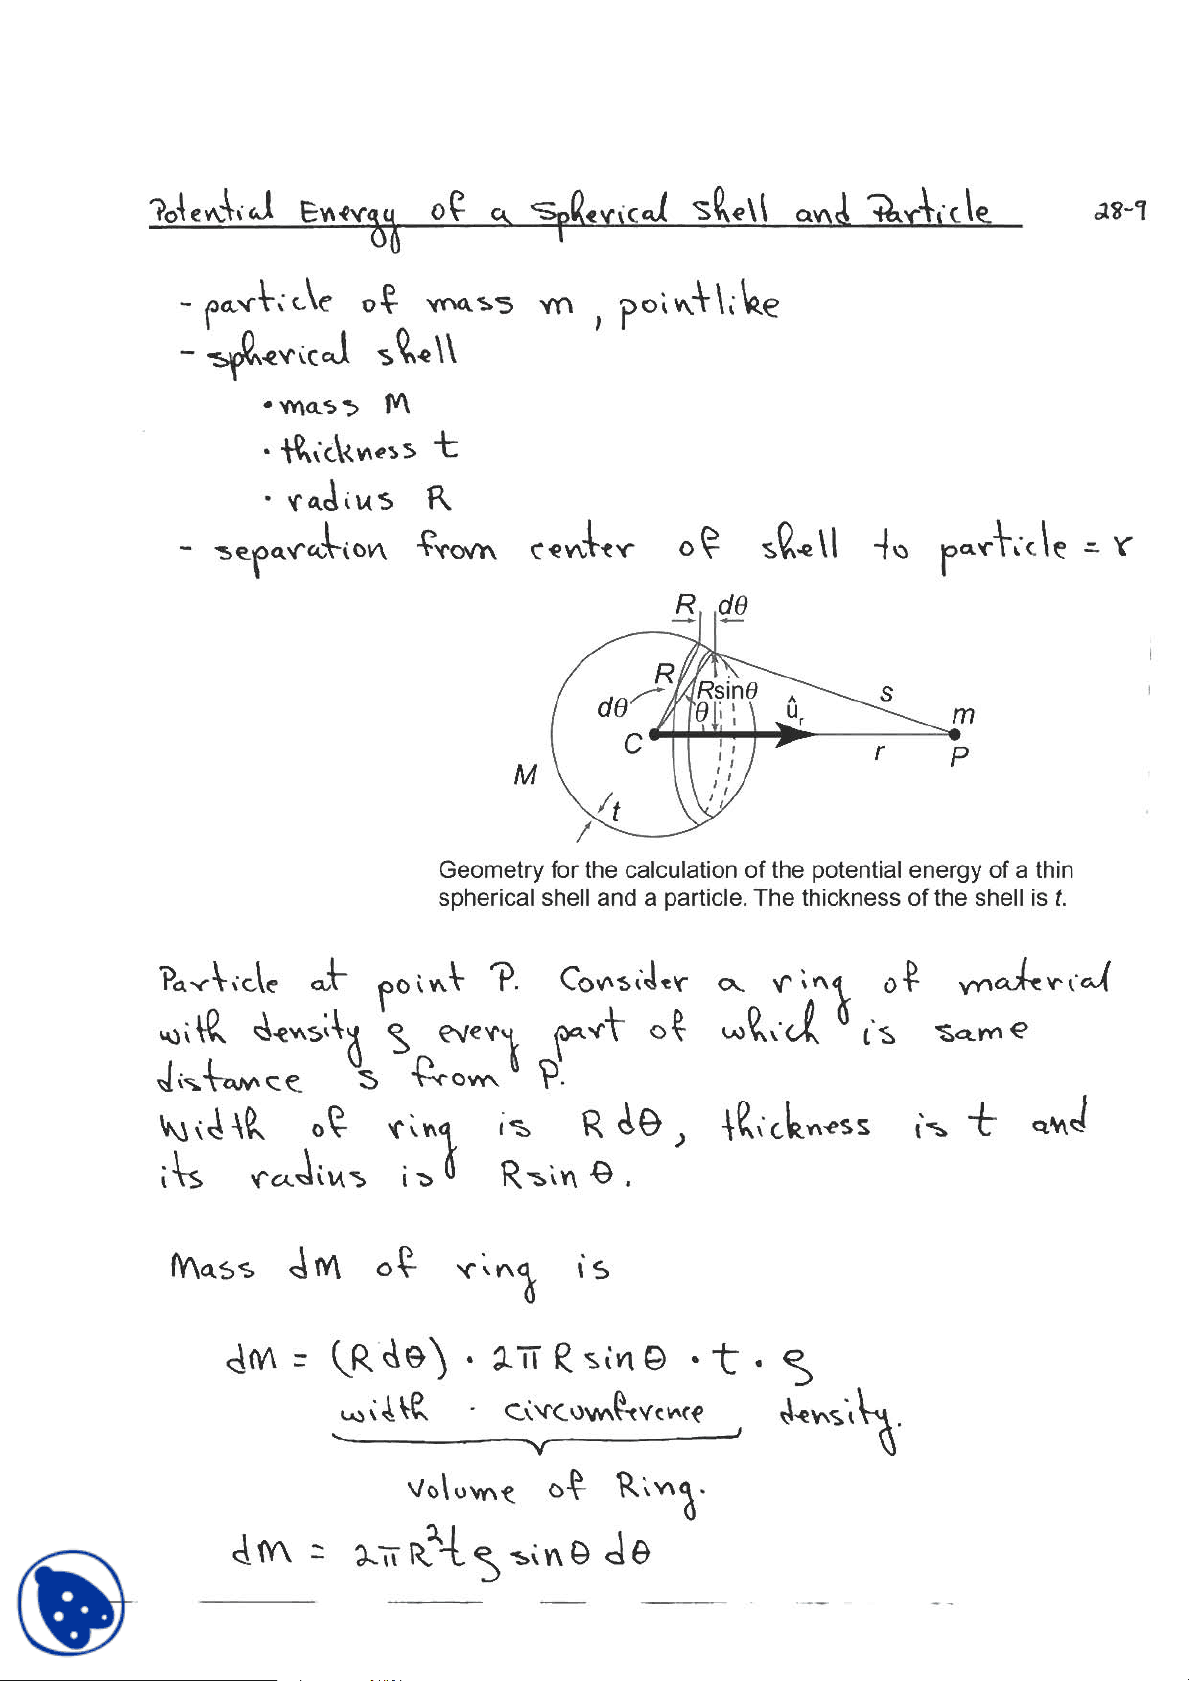 Potential Energy of a Spherical Shell and Particle 28-9
- particle of mass m, pointlike
- spherical shell
• mass M
• thickness t
• radius R
- separation from center of shell to particle = r
R dθ
R
Rsinθ
s
dθ
θ
û_r
m
C
r
P
M
t
Geometry for the calculation of the potential energy of a thin
spherical shell and a particle. The thickness of the shell is t.
Particle at point P. Consider a ring of material
with density ρ every part of which is same
distance s from P.
Width of ring is R dθ, thickness is t and
its radius is R sin θ.
Mass dM of ring is
dM = (R dθ) · 2π R sin θ · t · ρ
width · circumference density.
Volume of Ring.
dM = 2πR²tρ sinθ dθ